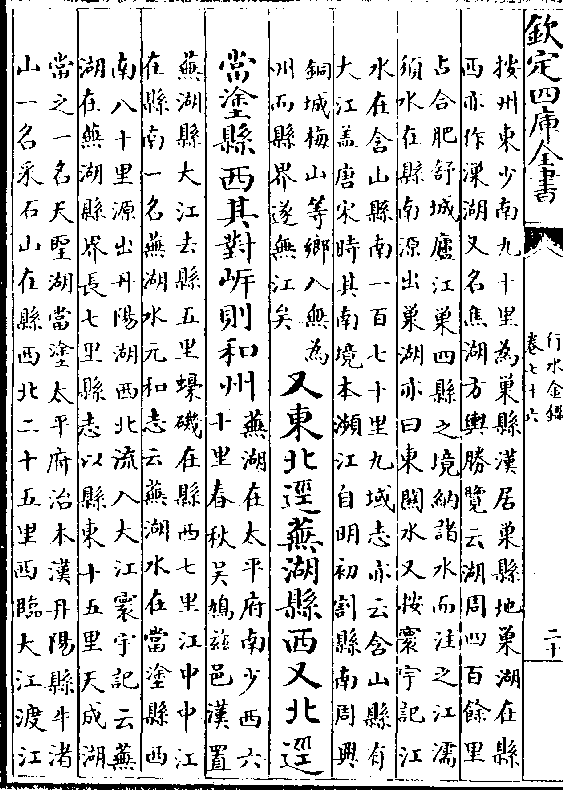 欽定四庫全書
行水金鑑
卷七十六
二十
按州東少南九十里為巢縣漢居巢縣地巢湖在縣
西亦作漅湖又名焦湖方輿勝覽云湖周四百餘里
占合肥舒城廬江巢四縣之境納諸水而注之江濡
須水在縣南源出巢湖亦曰東關水又按寰宇記江
水在含山縣南一百七十里九域志亦云含山縣有
大江盖唐宋時其南境本瀕江自明初割縣南周興
銅城梅山等鄉入無為
州而縣界遂無江矣
又東北逕蕪湖縣西又北逕
當塗縣西其對岍則和州
蕪湖在太平府南少西六
十里春秋吳鳩茲邑漢置
蕪湖縣大江去縣五里蟂磯在縣西七里江中中江
在縣南一名蕪湖水元和志云蕪湖水在當塗縣西
南八十里源出丹陽湖西北流入大江寰宇記云蕪
湖在蕪湖縣界長七里縣志以縣東十五里天成湖
當之一名天聖湖當塗太平府治本漢丹陽縣牛渚
山一名采石山在縣西北二十五里西臨大江渡江